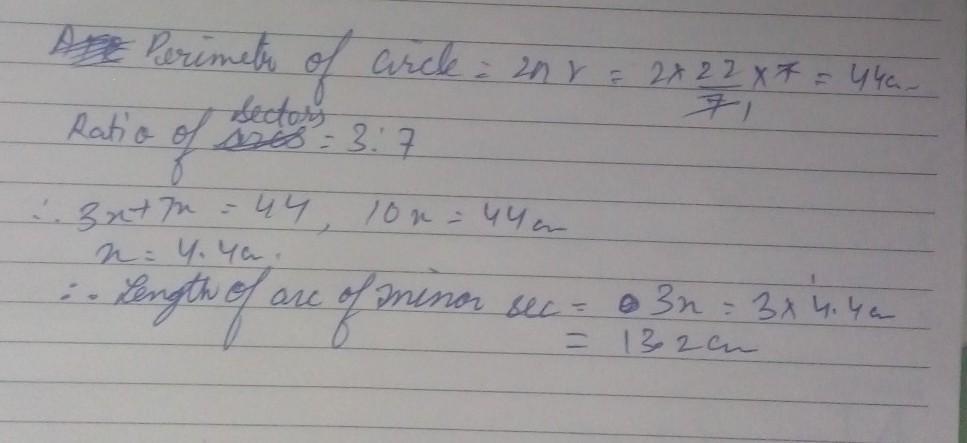 Perimetr of circle = 2πr = 2×22/7×7 = 44cm
1
Ratio of sectors = 3:7
∴ 3x+7x = 44, 10x = 44cm
x = 4.4cm.
∴ Length of arc of minor sec = 3x = 3×4.4cm
= 13.2cm